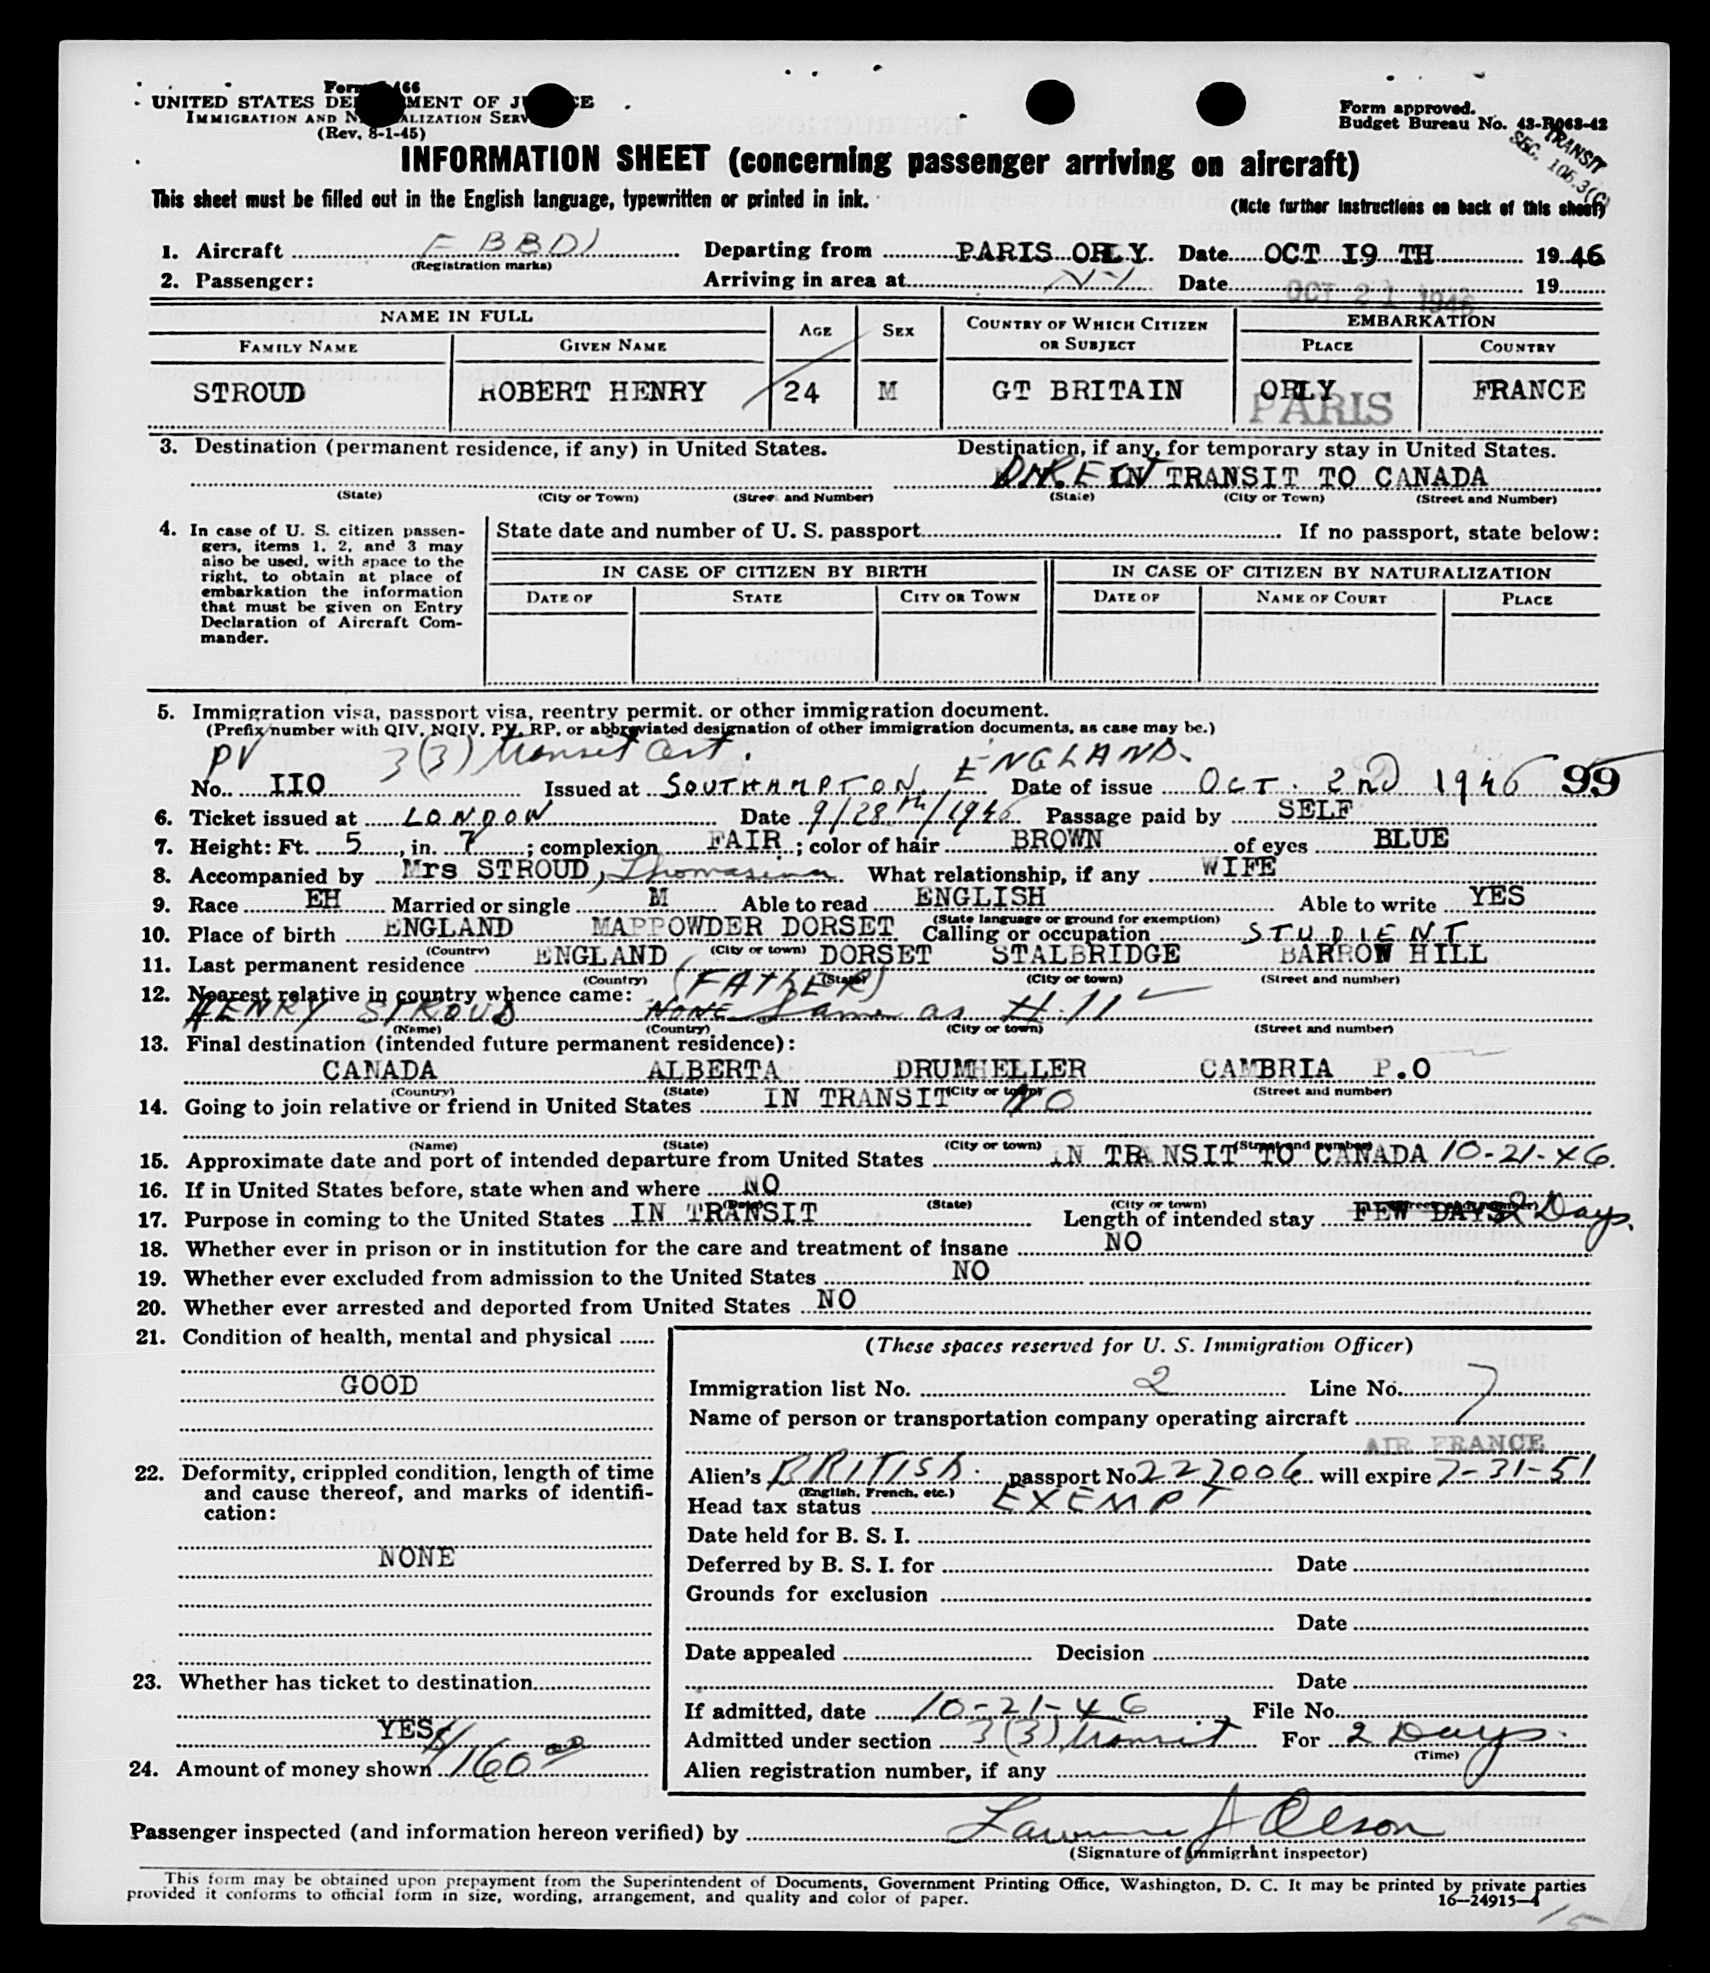 Form 466
UNITED STATES DE MENT OF J CE
IMMIGRATION AND N ALIZATION SERV
(Rev. 8-1-45)
Form approved.
Budget Bureau No. 43-R063-42
TRANSIT
SEC. 105.3(C)
INFORMATION SHEET (concerning passenger arriving on aircraft)
This sheet must be filled out in the English language, typewritten or printed in ink.
(Note further instructions on back of this sheet)
1. Aircraft F BBDI Departing from PARIS ORLY. Date OCT I9 TH 1946
(Registration marks)
2. Passenger: Arriving in area at NY Date OCT 21 1946 19
NAME IN FULL AGE SEX COUNTRY OF WHICH CITIZEN OR SUBJECT EMBARKATION
FAMILY NAME GIVEN NAME PLACE COUNTRY
STROUD ROBERT HENRY 24 M GT BRITAIN ORLY FRANCE
PARIS
3. Destination (permanent residence, if any) in United States. Destination, if any, for temporary stay in United States.
DIRECT IN TRANSIT TO CANADA
(State) (City or Town) (Street and Number) (State) (City or Town) (Street and Number)
4. In case of U. S. citizen passen-
gers, items 1, 2, and 3 may
also be used, with space to the
right, to obtain at place of
embarkation the information
that must be given on Entry
Declaration of Aircraft Com-
mander.
State date and number of U. S. passport If no passport, state below:
IN CASE OF CITIZEN BY BIRTH IN CASE OF CITIZEN BY NATURALIZATION
DATE OF STATE CITY OR TOWN DATE OF NAME OF COURT PLACE
5. Immigration visa, passport visa, reentry permit, or other immigration document.
(Prefix number with QIV, NQIV, PV, RP, or abbreviated designation of other immigration documents, as case may be.)
PV 3(3) transit cert. ENGLAND.
No. IIO Issued at SOUTHAMPTON. Date of issue OCT. 2ND 1946 95
6. Ticket issued at LONDON Date 9/28th/1946 Passage paid by SELF
7. Height: Ft. 5, in. 7; complexion FAIR; color of hair BROWN of eyes BLUE
8. Accompanied by Mrs STROUD, Thomasina What relationship, if any WIFE
9. Race EH Married or single M Able to read ENGLISH Able to write YES
(State language or ground for exemption)
10. Place of birth ENGLAND MAPPOWDER DORSET Calling or occupation STUDIENT
(Country) (City or town)
11. Last permanent residence ENGLAND DORSET STALBRIDGE BARROW HILL
(Country) (State) (City or town) (Street and number)
12. Nearest relative in country whence came: (FATHER)
HENRY STROUD NONE Same as #11
(Name) (Country) (City or town) (Street and number)
13. Final destination (intended future permanent residence):
CANADA ALBERTA DRUMHELLER CAMBRIA P.O
(Country) (State) (City or town) (Street and number)
14. Going to join relative or friend in United States IN TRANSIT NO
(Name) (State) (City or town) (Street and number)
15. Approximate date and port of intended departure from United States IN TRANSIT TO CANADA 10-21-46.
16. If in United States before, state when and where NO
(Date) (State) (City or town) (Street and number)
17. Purpose in coming to the United States IN TRANSIT Length of intended stay FEW DAYS 2 Days.
18. Whether ever in prison or in institution for the care and treatment of insane NO
19. Whether ever excluded from admission to the United States NO
20. Whether ever arrested and deported from United States NO
21. Condition of health, mental and physical
GOOD
22. Deformity, crippled condition, length of time
and cause thereof, and marks of identifi-
cation:
NONE
23. Whether has ticket to destination
YES
24. Amount of money shown $160 00
(These spaces reserved for U. S. Immigration Officer)
Immigration list No. 2 Line No. 7
Name of person or transportation company operating aircraft
AIR FRANCE
Alien's BRITISH. passport No 227006 will expire 7-31-51
(English, French, etc.)
Head tax status EXEMPT
Date held for B. S. I.
Deferred by B. S. I. for Date
Grounds for exclusion
Date
Date appealed Decision
Date
If admitted, date 10-21-46 File No.
Admitted under section 3(3) transit For 2 Days.
(Time)
Alien registration number, if any
Passenger inspected (and information hereon verified) by Lawrence J Olson
(Signature of immigrant inspector)
This form may be obtained upon prepayment from the Superintendent of Documents, Government Printing Office, Washington, D. C. It may be printed by private parties
provided it conforms to official form in size, wording, arrangement, and quality and color of paper. 16—24915-4
15